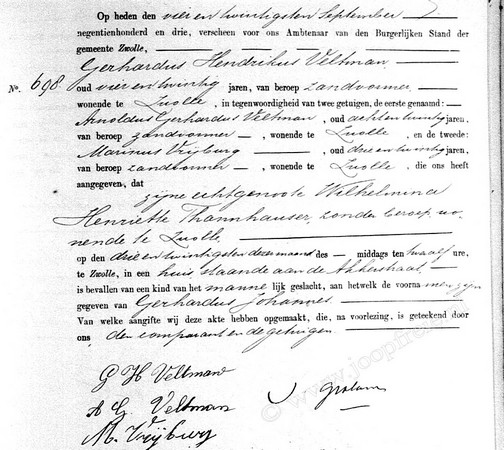 Op heden den vier en twintigsten September
negentienhonderd en drie, verscheen voor ons Ambtenaar van den Burgerlijken Stand der
gemeente Zwolle,
Gerhardus Hendrikus Veltman
No. 698.
oud vier en twintig jaren, van beroep zandvormer
wonende te Zwolle, in tegenwoordigheid van twee getuigen, de eerste genaamd:
Arnoldus Gerhardus Veltman, oud acht en twintig jaren,
van beroep zandvormer, wonende te Zwolle, en de tweede:
Marinus Vrijburg, oud drie en twintig jaren,
van beroep zandvormer, wonende te Zwolle, die ons heeft
aangegeven, dat
zijne echtgenoote Wilhelmina
Henriette Thannhauser, zonder beroep, wo-
nende te Zwolle,
op den drie en twintigsten dezer maand des middags ten twaalf ure,
te Zwolle, in een huis, staande aan de
is bevallen van een kind van het mannelijk geslacht, aan hetwelk de voornamen zijn
gegeven van Gerhardus Johannes.
Van welke aangifte wij deze akte hebben opgemaakt, die, na voorlezing, is geteekend door
ons, den comparant en de getuigen.
G H Veltman
A G Veltman
M. Vrijburg
© www.joopfre